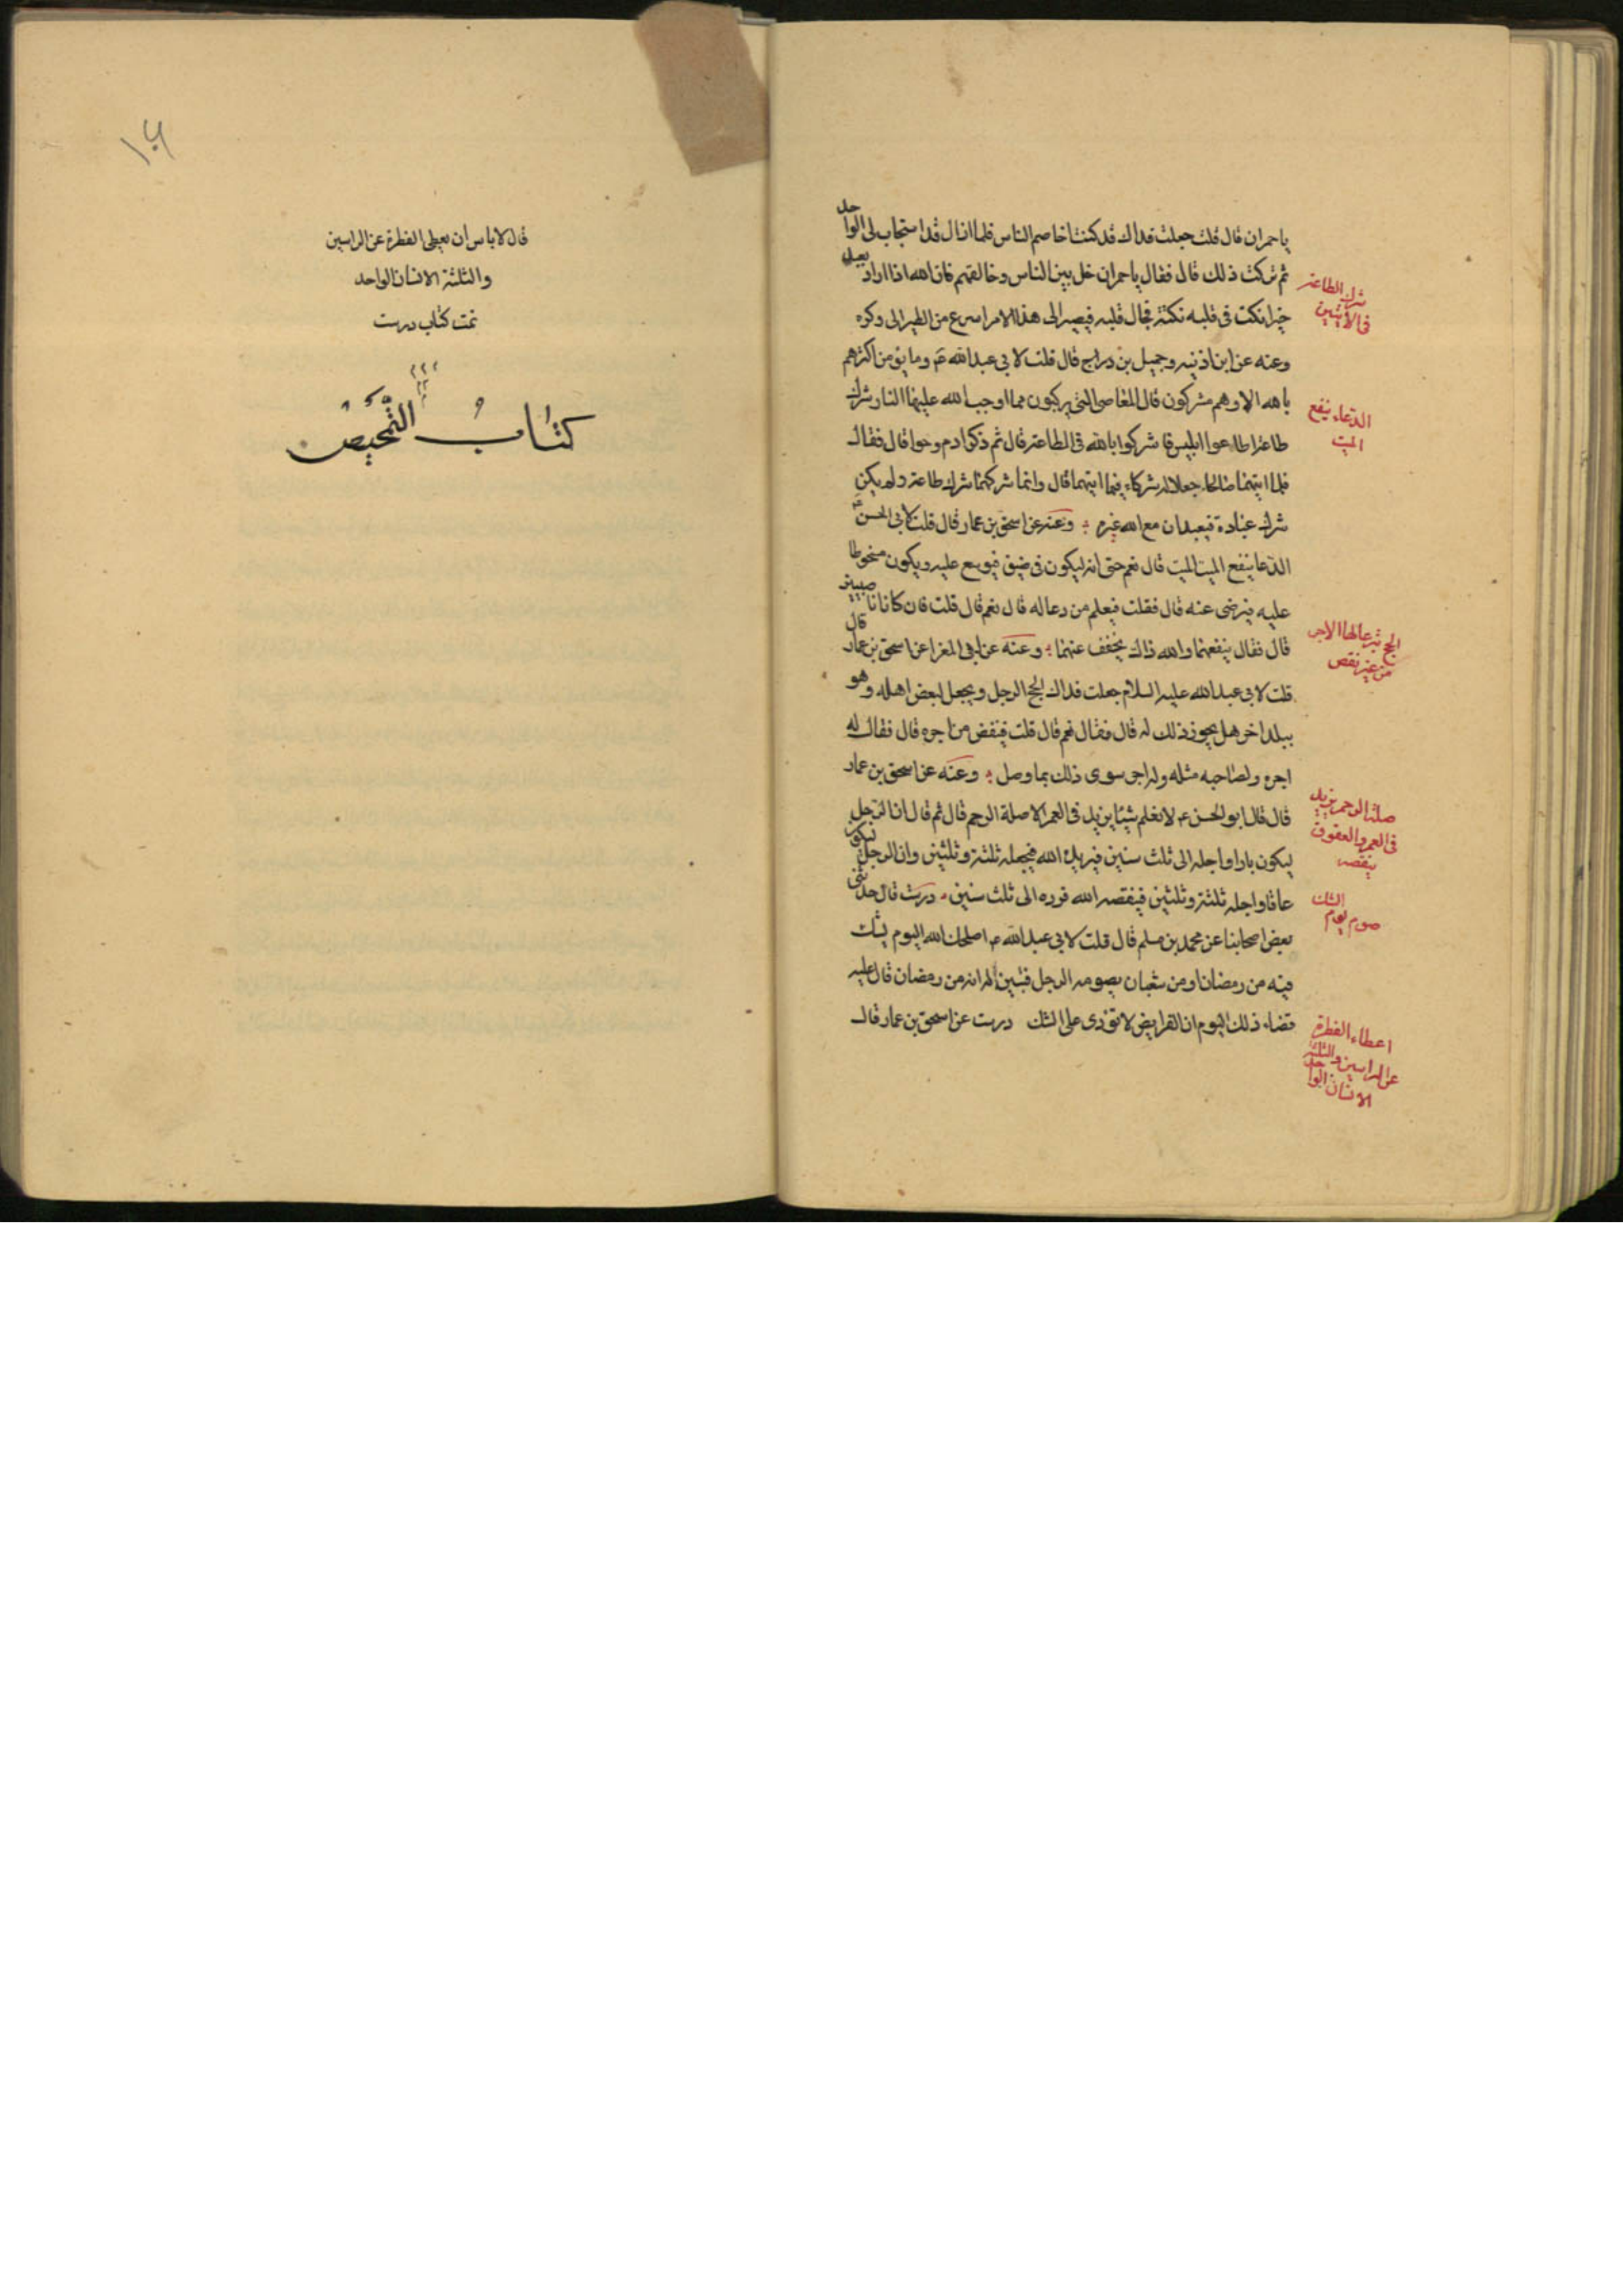 يا حمران قال قلت جعلت فداك قد كنت اخاصم الناس فلما ازال قد استجاب لى الواحد بعد
ثم تركت ذلك قال فقال يا حمران خل بين الناس وخالقهم فان الله اذا اراد بعبد
خيرا نكت فى قلبه نكتة فجال قلبه فيصير الى هذا الامر اسرع من الطير الى وكره
وعنه عن ابن اذنيه وجميل بن دراج قال قلت لابى عبد الله ع وما يؤمن اكثرهم
بالله الا وهم مشركون قال المعاصى التى يركبون مما اوجب الله عليها النار شرك
طاعة اطاعوا ابليس فاشركوا بالله فى الطاعة قال ثم ذكر ادم وحوا قال فقال
فلما ايتهما صالحا جعلا له شركاء فيما ايتهما قال وانما شركهما شرك طاعة ولم يكن
شرك عبادة فيعبدان مع الله غيره وعنه عن اسحق بن عمار قال قلت لابى الحسن ع
الدعا ينفع الميت الميت قال نعم حتى انه ليكون فى ضيق فيوسع عليه ويكون مسخوطا
عليه فيرضى عنه قال فقلت فيعلم من دعا له قال نعم قال قلت فان كانا ناصبيين
قال فقال ينفعهما والله ذاك يخفف عنهما وعنه عن ابى المغرا عن اسحق بن عمار قال
قلت لابى عبد الله عليه السلام جعلت فداك الحج الرجل ويجعل لبعض اهله وهو
ببلد اخر هل يجوز ذلك له قال فقال نعم قال قلت فينقص من اجره قال فقال له
اجره ولصاحبه مثله وله اجر سوى ذلك بما وصل وعنه عن اسحق بن عمار
قال قال ابو الحسن ع لا نعلم شيئا يزيد فى العمر الا صلة الرحم قال ثم قال ان الرجل
ليكون بارا واجله الى ثلث سنين فيزيده الله فيجعله ثلثة وثلثين وان الرجل ليكون
عاقا واجله ثلثة وثلثين فينقصه الله فرده الى ثلث سنين درست قال حدثنى
بعض اصحابنا عن محمد بن مسلم قال قلت لابى عبد الله ع اصلحك الله اليوم يشك
فيه من رمضان او من شعبان يصومه الرجل فتبين له انه من رمضان قال عليه
قضاء ذلك اليوم ان الفرايض لا تؤدى على الشك درست عن اسحق بن عمار قال
شرك الطاعة
فى الآيتين
الدعاء ينفع
الميت
الحج يشرعا لها الاجر
من غير نقص
صلة الرحم يزيد
فى العمر والعقوق
ينقصه
صوم يوم الشك
اعطاء الفطرة
عن الراسين والثلثة
الانسان الواحد
١٠٦
قال لا باس ان يعطى الفطرة عن الراسين
والثلثة الانسان الواحد
تمت كتاب درست
كتاب التمحيص